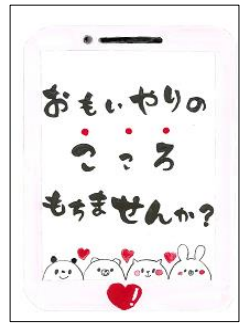 おもいやりの
こころ
もちませんか?